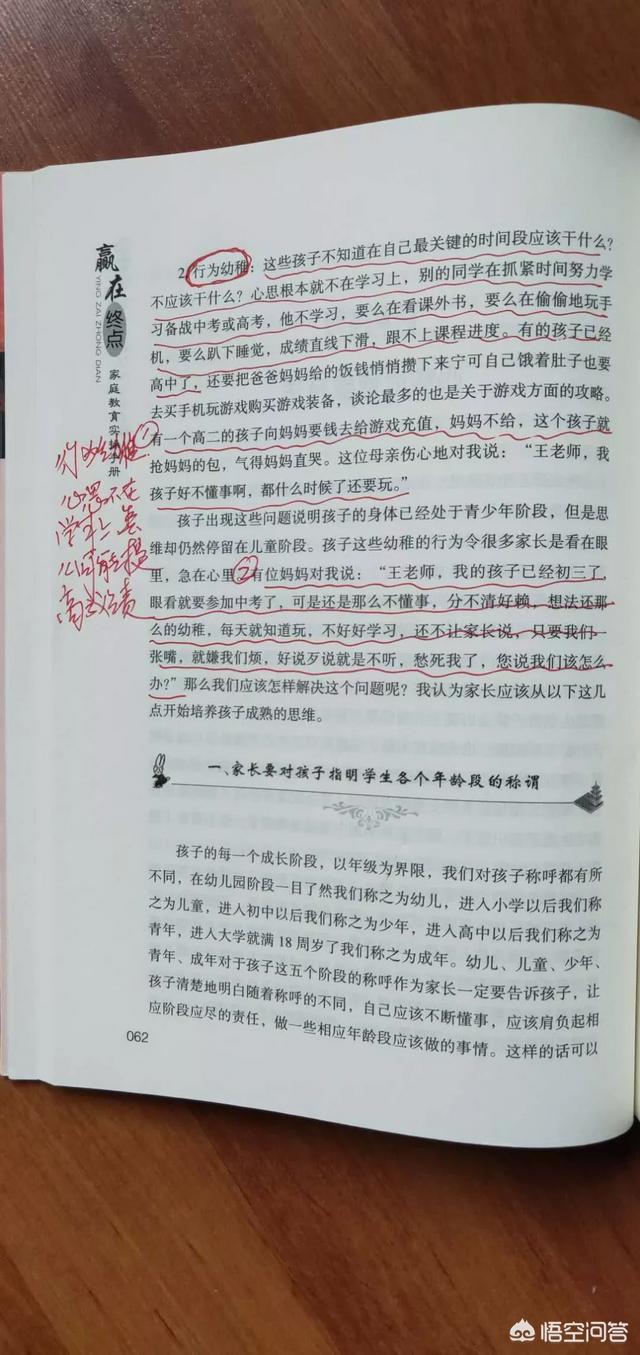 赢在终点
YING ZAI ZHONG DIAN
家庭教育实
册
2.行为幼稚：这些孩子不知道在自己最关键的时间段应该干什么？
不应该干什么？心思根本就不在学习上，别的同学在抓紧时间努力学
习备战中考或高考，他不学习，要么在看课外书，要么在偷偷地玩手
机，要么趴下睡觉，成绩直线下滑，跟不上课程进度。有的孩子已经
高中了，还要把爸爸妈妈给的饭钱悄悄攒下来宁可自己饿着肚子也要
去买手机玩游戏购买游戏装备，谈论最多的也是关于游戏方面的攻略。
有一个高二的孩子向妈妈要钱去给游戏充值，妈妈不给，这个孩子就
抢妈妈的包，气得妈妈直哭。这位母亲伤心地对我说：“王老师，我
孩子好不懂事啊，都什么时候了还要玩。”
孩子出现这些问题说明孩子的身体已经处于青少年阶段，但是思
维却仍然停留在儿童阶段。孩子这些幼稚的行为令很多家长是看在眼
里，急在心里②有位妈妈对我说：“王老师，我的孩子已经初三了，
眼看就要参加中考了，可是还是那么不懂事，分不清好赖，想法还那
么的幼稚，每天就知道玩，不好好学习，还不让家长说，只要我们一
张嘴，就嫌我们烦，好说歹说就是不听，愁死我了，您说我们该怎么
办？”那么我们应该怎样解决这个问题呢？我认为家长应该从以下这几
点开始培养孩子成熟的思维。
一、家长要对孩子指明学生各个年龄段的称谓
孩子的每一个成长阶段，以年级为界限，我们对孩子称呼都有所
不同，在幼儿园阶段一目了然我们称之为幼儿，进入小学以后我们称
之为儿童，进入初中以后我们称之为少年，进入高中以后我们称之为
青年，进入大学就满 18 周岁了我们称之为成年。幼儿、儿童、少年、
青年、成年对于孩子这五个阶段的称呼作为家长一定要告诉孩子，让
孩子清楚地明白随着称呼的不同，自己应该不断懂事，应该肩负起相
应阶段应尽的责任，做一些相应年龄段应该做的事情。这样的话可以
062
行为幼稚①
心思不在
学生上 怎
么可能提
高成绩
悟空问答